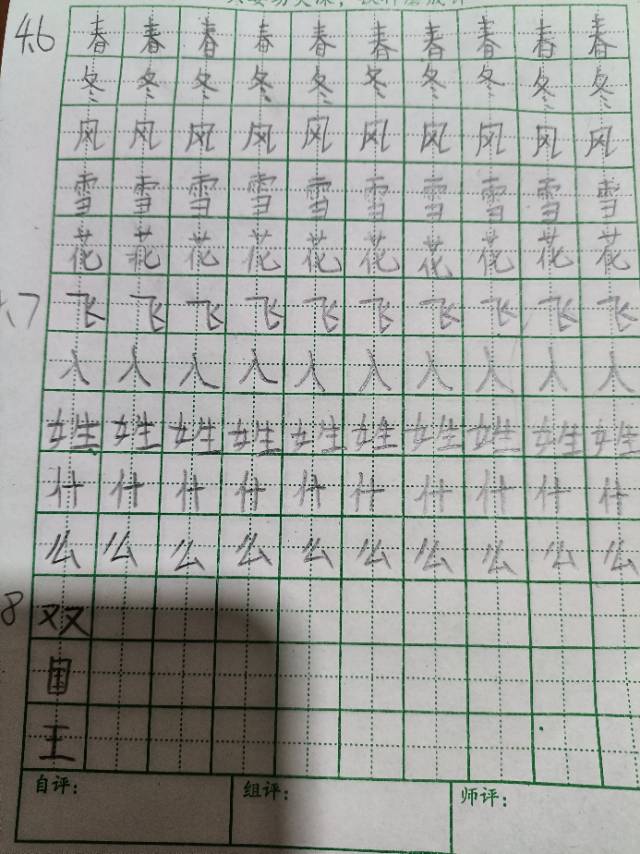 4.6 春 春 春 春 春 春 春 春 春 春
冬 冬 冬 冬 冬 冬 冬 冬 冬 冬
风 风 风 风 风 风 风 风 风 风
雪 雪 雪 雪 雪 雪 雪 雪 雪 雪
花 花 花 花 花 花 花 花 花 花
.7 飞 飞 飞 飞 飞 飞 飞 飞 飞 飞
入 入 入 入 入 入 入 入 入 入
姓 姓 姓 姓 姓 姓 姓 姓 姓 姓
什 什 什 什 什 什 什 什 什 什
么 么 么 么 么 么 么 么 么 么
8 双
国
王
自评: 组评: 师评: